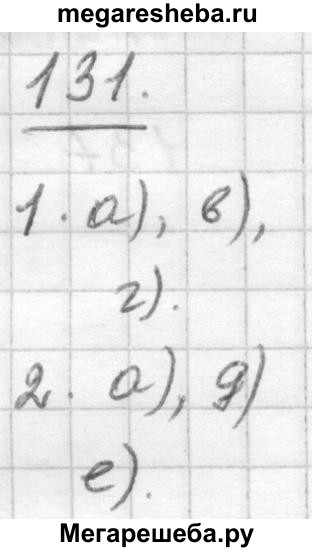 megaresheba.ru
131.
1. а), в),
г).
2. а), д)
е).
Мегарешеба.ру